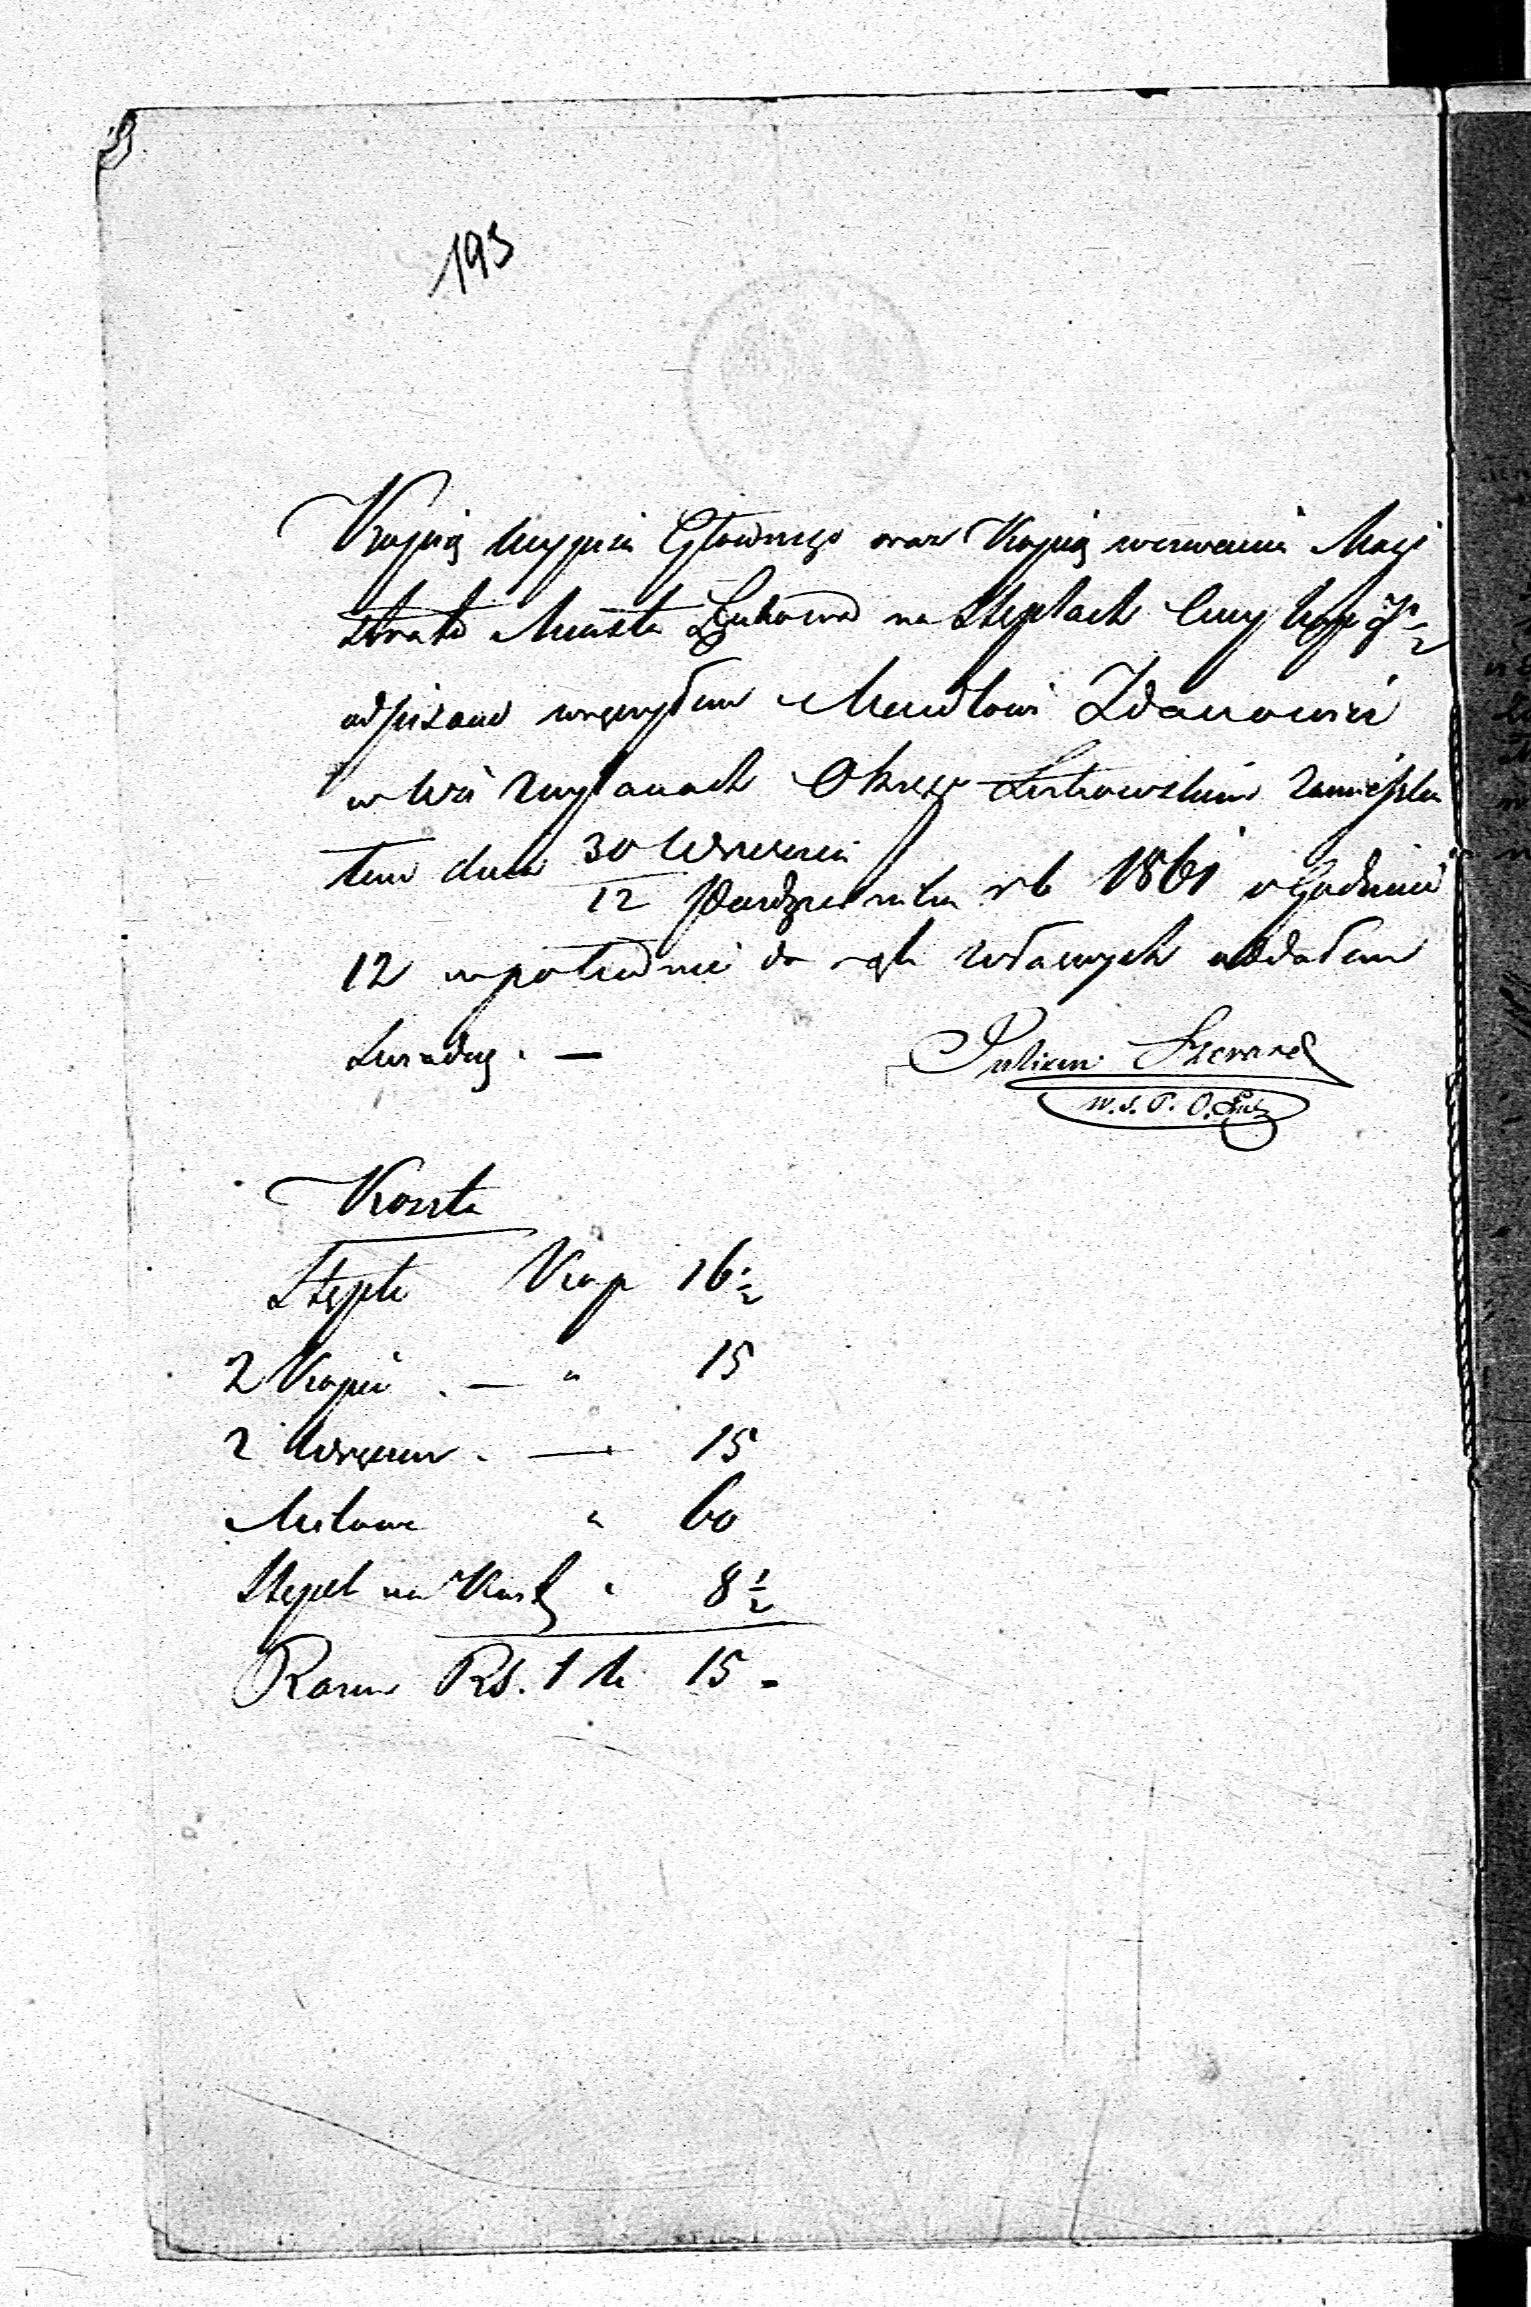 193
Kopią wypisu Głównego oraz Kopią wezwania Magi
stratu Miasta Łukowa na Steplach Ceny kop 7½
odpisane wręczyłem Mendlowi Zdanowicz
w Wsi Okręgu Łukowskim zamieszka
łem dnia 30 Września
12 Października r b 1861 o Godzinie
12 w południe do rąk własnych oddałem
Świadczę. —
Julian
W. S. P. O. Łuk
Koszta
Stęple Kop 16½
2 Kopie . — " 15
2 Wręczen . — 15
Milowe " 60
Stępel na Koszt " 8½
Razem Rs. 1 k 15 -